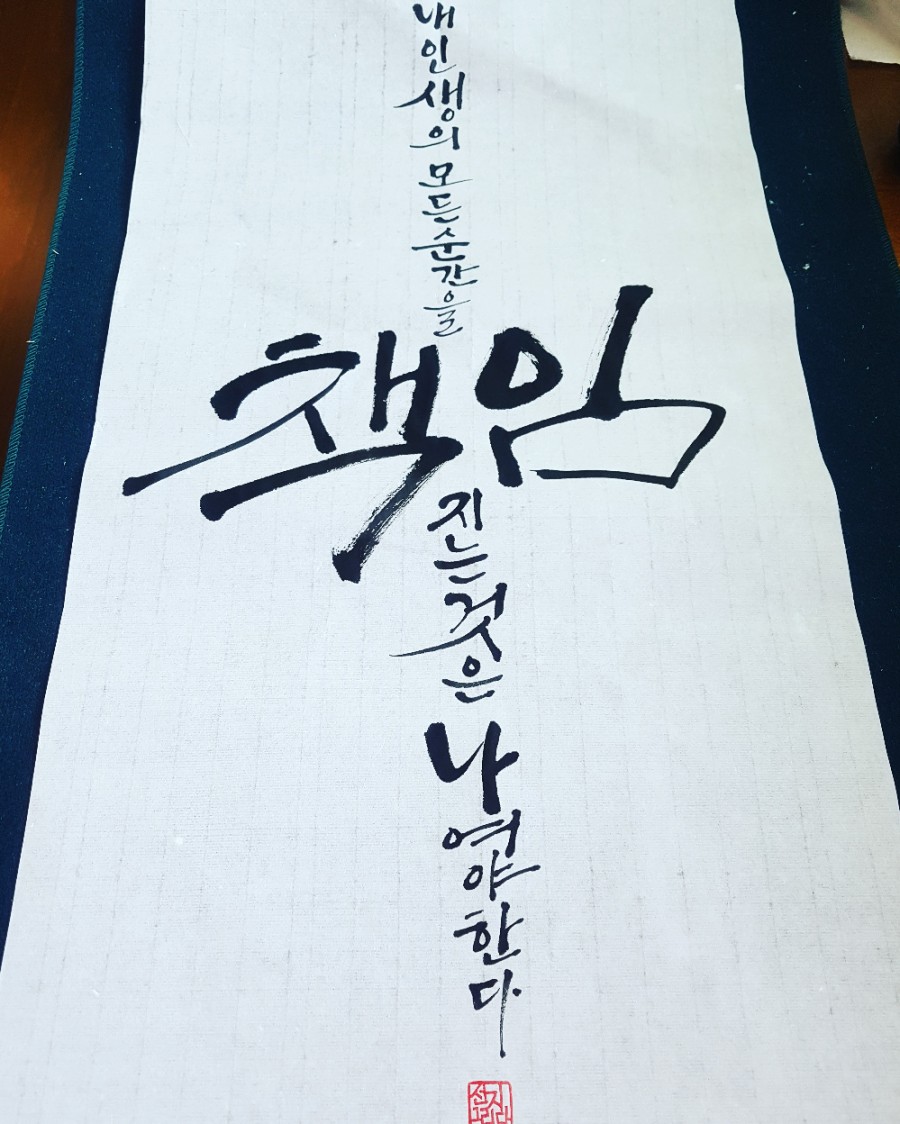 내 인생의 모든 순간을
책임
지는 것은
나
여야 한다